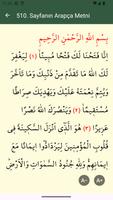 510. Sayfanın Arapça Metni
بِسْمِ اللَّهِ الرَّحْمَٰنِ الرَّحِيمِ
إِنَّا فَتَحْنَا لَكَ فَتْحًا مُبِينًا (١) لِيَغْفِرَ
لَكَ اللَّهُ مَا تَقَدَّمَ مِنْ ذَنْبِكَ وَمَا تَأَخَّرَ
وَيُتِمَّ نِعْمَتَهُ عَلَيْكَ وَيَهْدِيَكَ صِرَاطًا
مُسْتَقِيمًا (٢) وَيَنْصُرَكَ اللَّهُ نَصْرًا
عَزِيزًا (٣) هُوَ الَّذِي أَنْزَلَ السَّكِينَةَ
فِي قُلُوبِ الْمُؤْمِنِينَ لِيَزْدَادُوا إِيمَانًا مَعَ
إِيمَانِهِمْ وَلِلَّهِ جُنُودُ السَّمَاوَاتِ وَالْأَرْضِ
A- A+